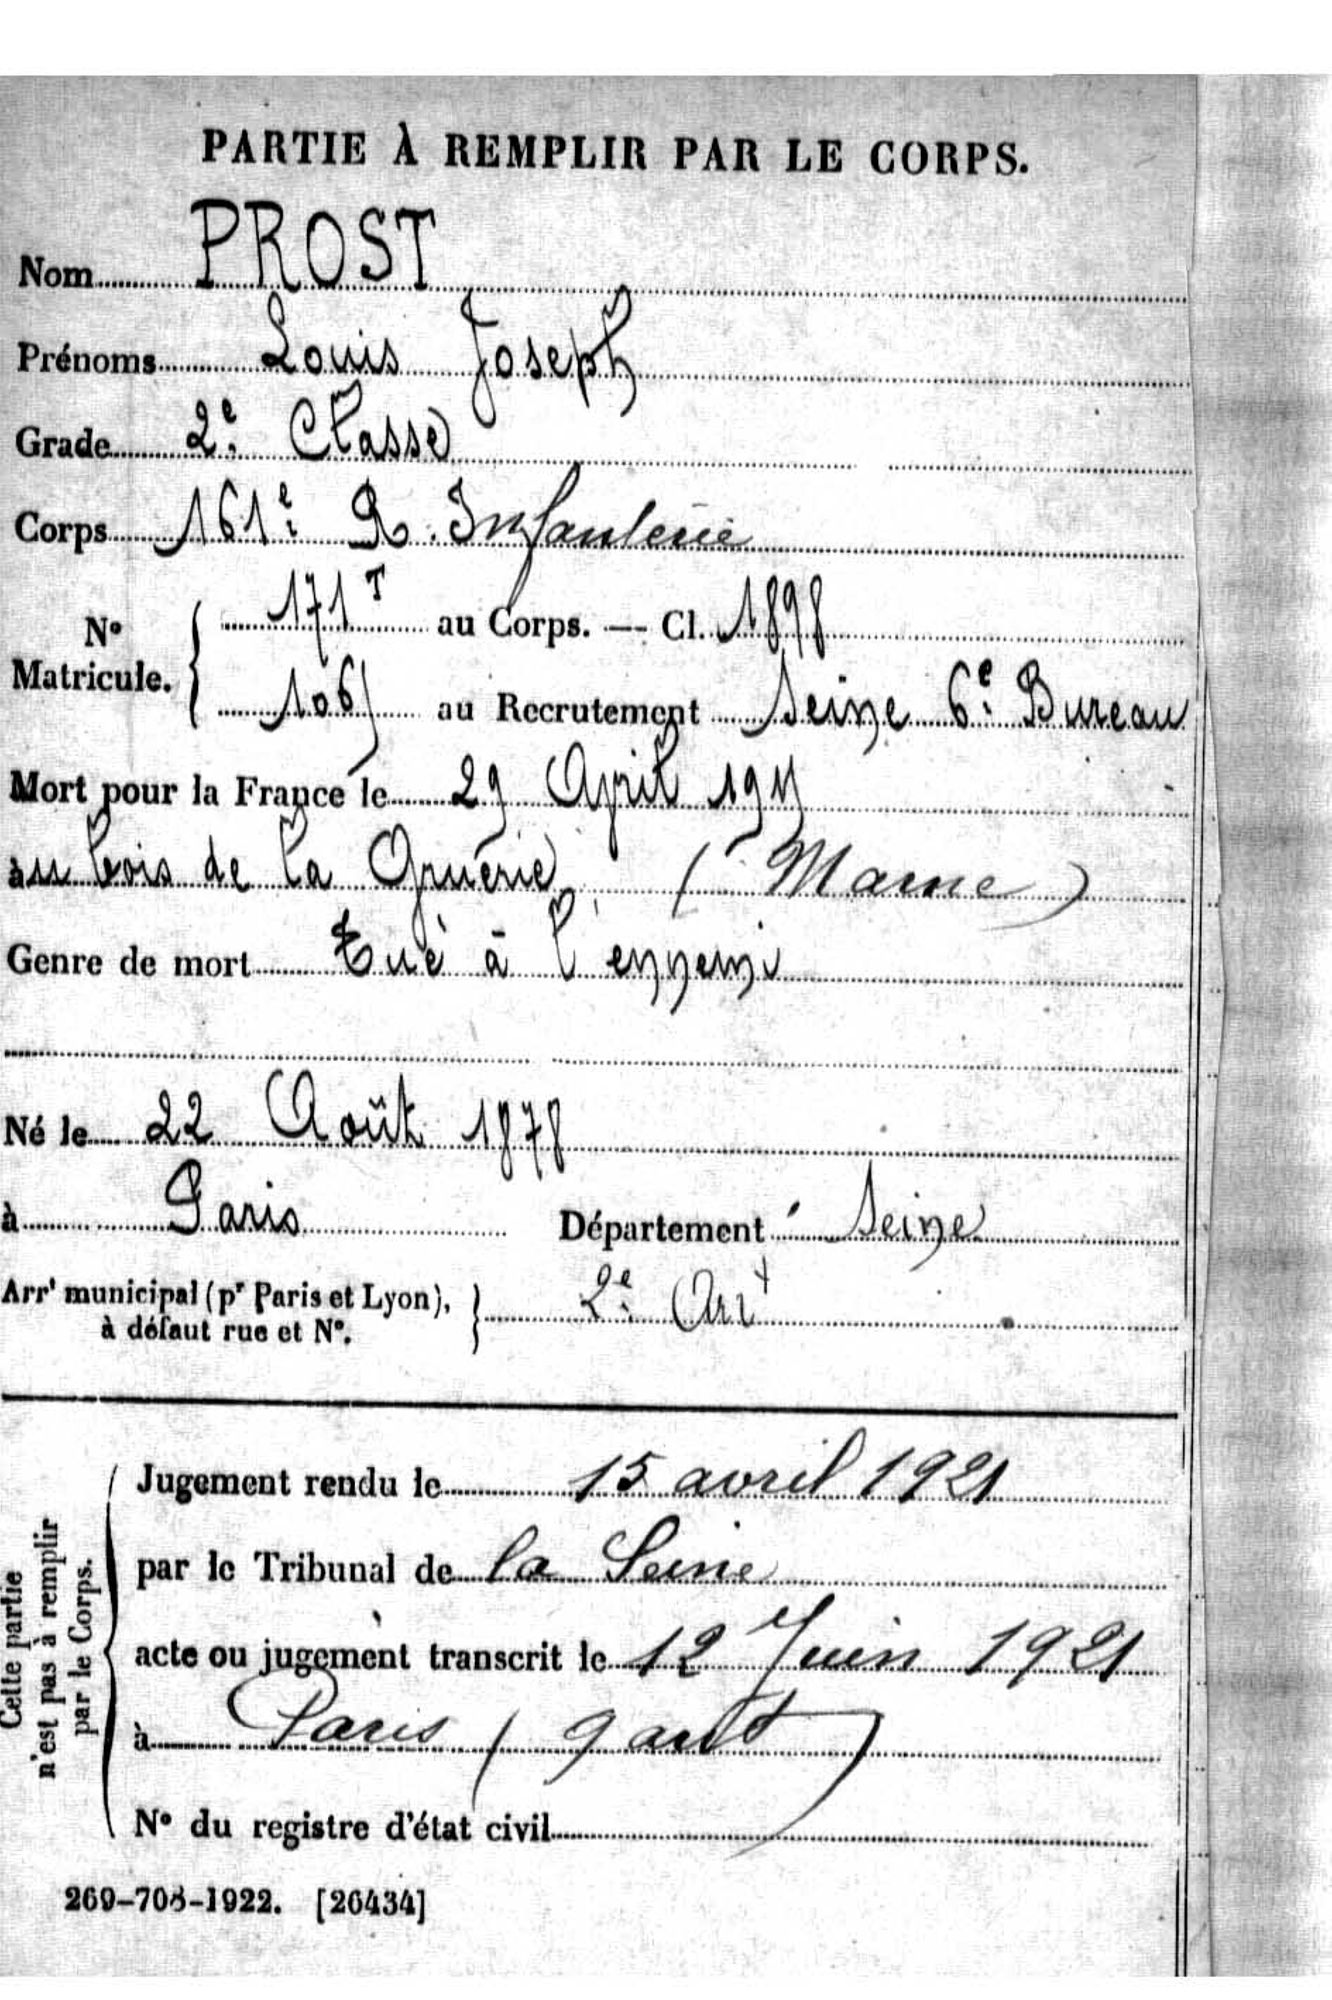 PARTIE À REMPLIR PAR LE CORPS.
Nom PROST
Prénoms Louis Joseph
Grade 2e Classe
Corps 161e R. Infanterie
N° Matricule. 171 T au Corps. — Cl. 1898
au Recrutement Seine 6e Bureau
Mort pour la France le 29 April
au bois de la Gruerie (Marne)
Genre de mort Tué à l'ennemi
Né le 22 Août 1878
à Paris Département Seine
Arrt municipal (pr Paris et Lyon), à défaut rue et N°. 2e Arrt
Cette partie n'est pas à remplir par le Corps.
Jugement rendu le 15 avril 1921
par le Tribunal de la Seine
acte ou jugement transcrit le 12 Juin 1921
à Paris (9 arrt)
N° du registre d'état civil
269-708-1922. [26434]